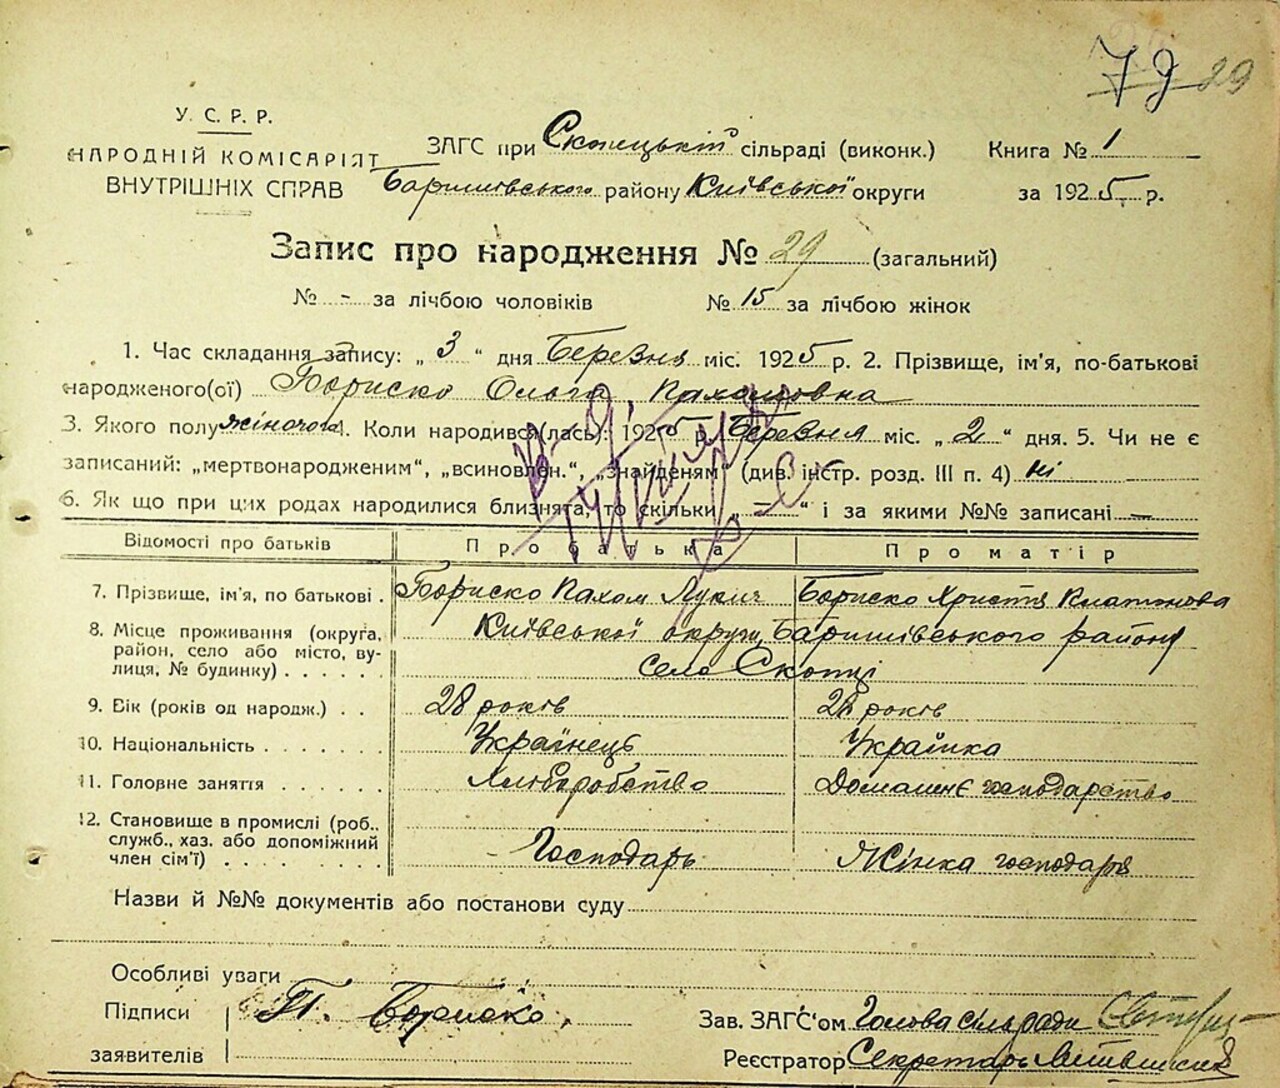 79 29
У. С. Р. Р.
НАРОДНІЙ КОМІСАРІЯТ
ВНУТРІШНІХ СПРАВ
ЗАГС при Скопецькій сільраді (виконк.) Книга № 1
Баришівського району Київської округи за 1925 р.
Запис про народження № 29 (загальний)
№ - за лічбою чоловіків № 15 за лічбою жінок
1. Час складання запису: „3“ дня Березня міс. 1925 р. 2. Прізвище, ім'я, по-батькові
народженого(ої) Бориско Ольга Пахомовна
3. Якого полу жіночого 4. Коли народився(лась): 1925 р. Березня міс. „2“ дня. 5. Чи не є
записаний: „мертвонародженим“, „всиновлен.“, „знайденям“ (див. інстр. розд. III п. 4) ні
6. Як що при цих родах народилися близнята, то скільки „—“ і за якими №№ записані —
Відомості про батьків Про батька Про матір
7. Прізвище, ім'я, по батькові . Бориско Пахом Лукич Бориско Христя Платонова
8. Місце проживання (округа, Київської округи, Баришівського району
район, село або місто, ву- село Скопці
лиця, № будинку) . . . . . .
9. Вік (років од народж.) . . 28 років 28 років
10. Національність . . . . . . . Українець Українка
11. Головне заняття . . . . . . Хліборобство Домашнє господарство
12. Становище в промислі (роб.,
служб., хаз. або допоміжний
член сім'ї) . . . . . . . . Господарь Жінка господаря
Назви й №№ документів або постанови суду
Особливі уваги
Підписи П. Бориско.
заявителів
Зав. ЗАГС'ом Голова сільради
Реєстратор Секретарь